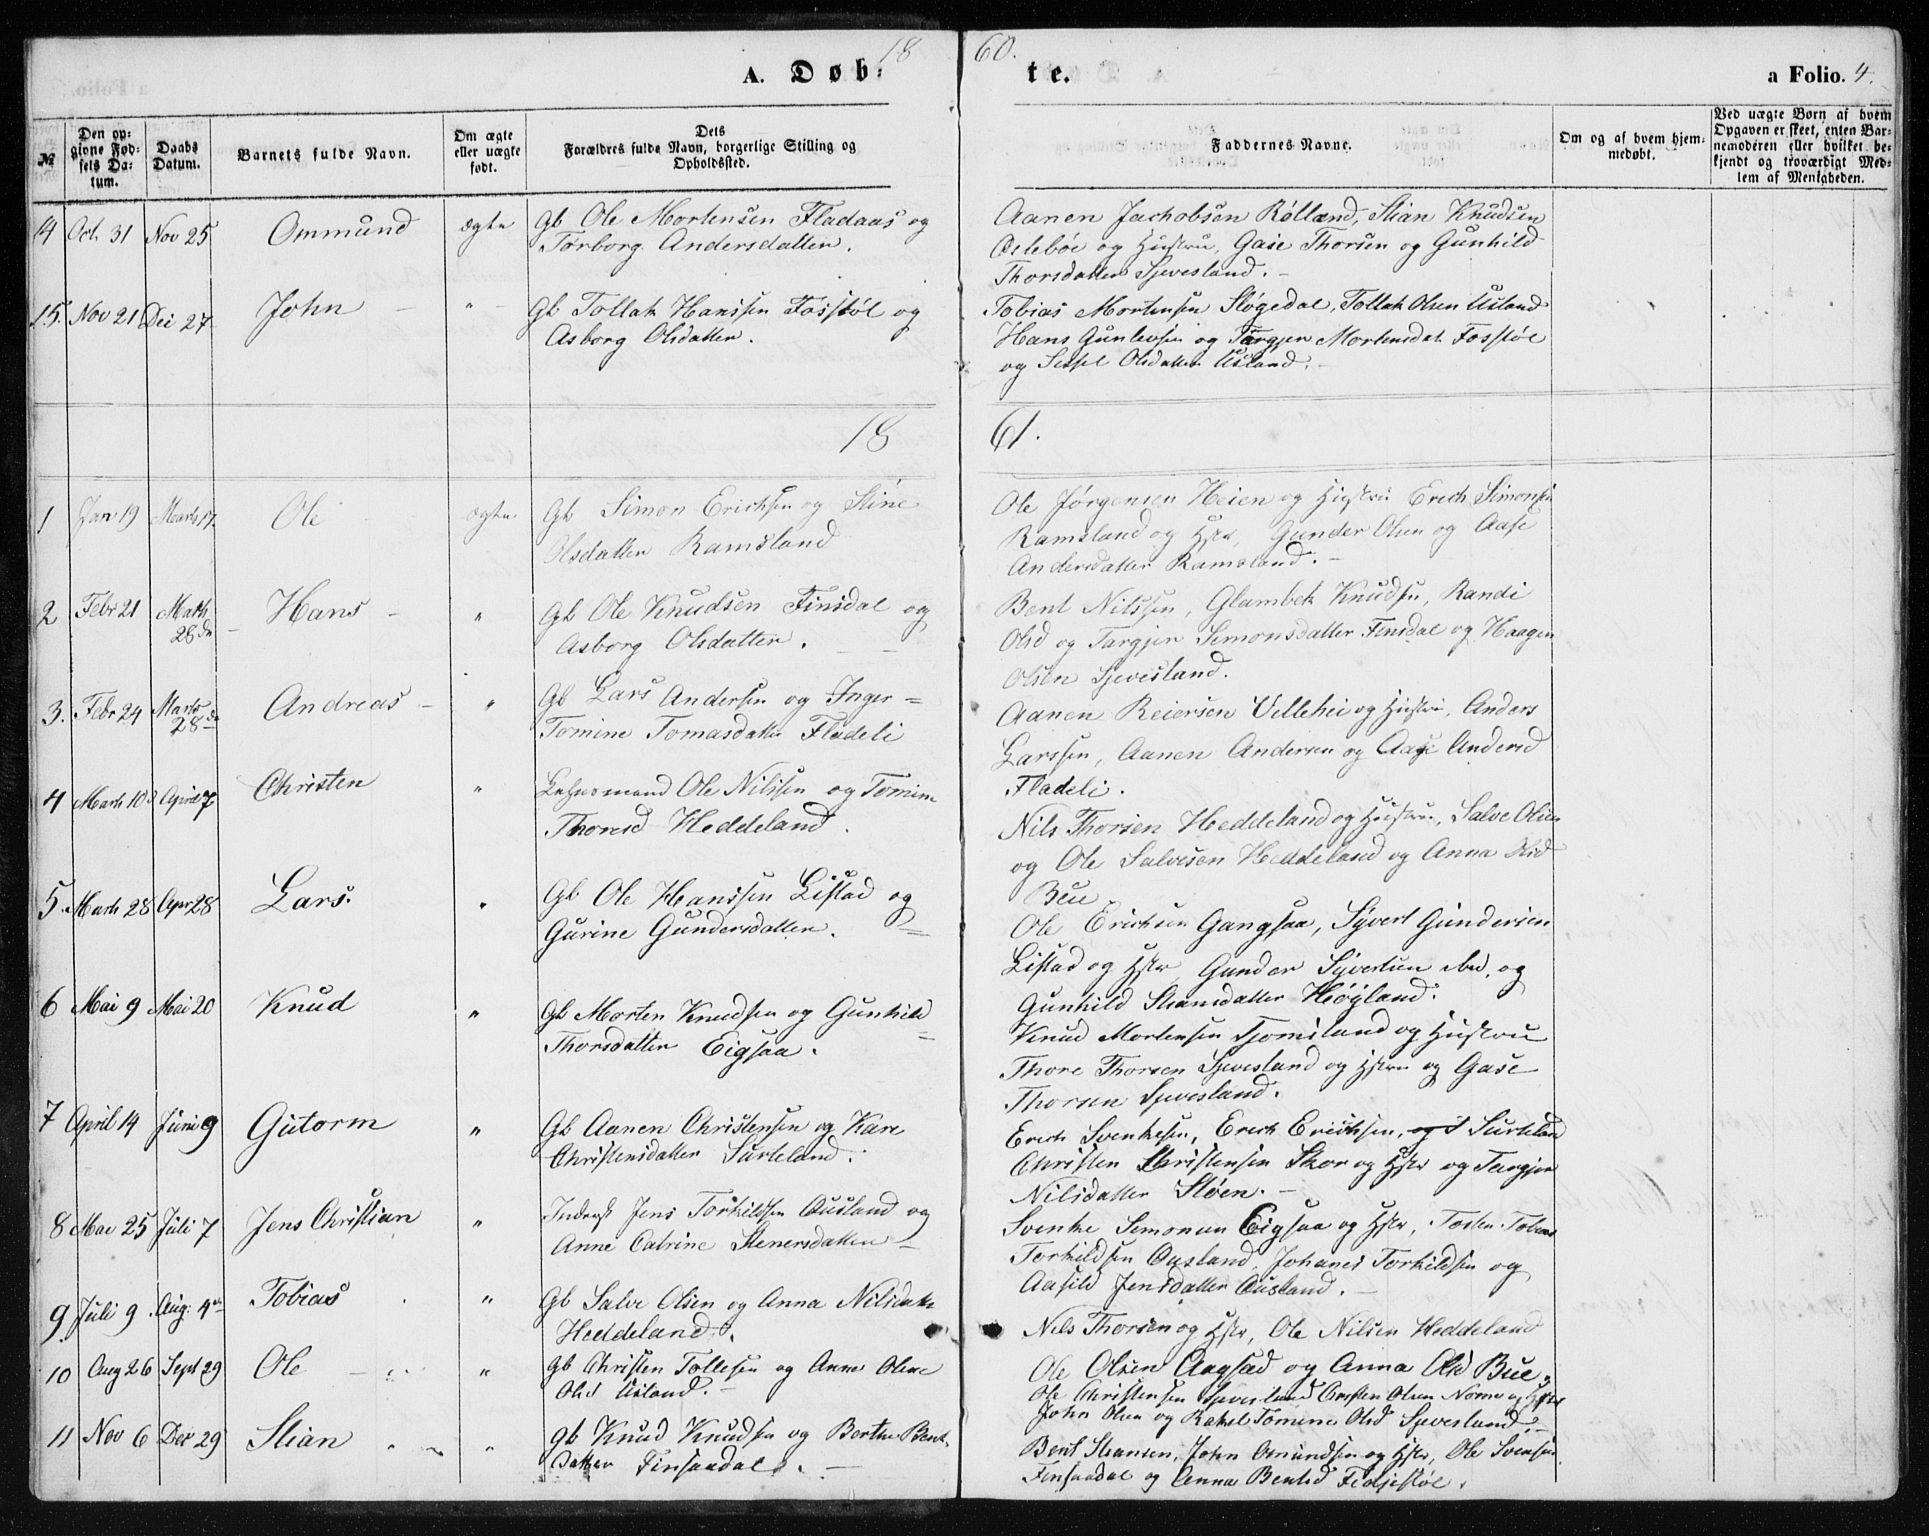 18
60.
A. Døb-
te.
a Folio. 4.
№
Den op-
givne Fød-
sels Da-
tum.
Daabs
Datum.
Barnets fulde Navn.
Om ægte
eller uægte
født.
Dets
Forældres fulde Navn, borgerlige Stilling og
Opholdssted.
Faddernes Navne.
Om og af hvem hjem-
medøbt.
Ved uægte Børn af hvem
Opgaven er skeet, enten Bar-
nemoderen eller hvilket be-
kjendt og troværdigt Med-
lem af Menigheden.
14 Oct. 31 Nov 25 Ommund ægte Gb Ole Mortensen Fladaas og
Torborg Andersdatter.
Aanen Jachobsen Rølland, Stian Knudsen
og Hustru, Gase Thorsen og Gunhild
Thorsdatter Sjevesland.
15. Nov 21 Dei 27 John " Gb Tollak Hanssen Fosstøl og
Asborg Olsdatter.
Tobias Mortensen Sløgedal, Tollak Olsen Usland
Hans Gunlevsen og Targjer Mortensdat. Fosstøl
og Sissel Olsdatter Usland.
18
61.
1 Jan 19 Marts 17. Ole ægte Gb Simon Erichsen og Stine
Olsdatter Ramsland
Ole Jørgensen Heien og Hustru Erich Simonsen
Ramsland og Hstr, Gunder Olsen og Aase
Andersdatter Ramsland.
2 Febr 21 Marts
28de Hans " Gb Ole Knudsen Finsdal og
Asborg Olsdatter.
Bent Nilssen, Glambek Knudsen, Randi
Olsd og Targjer Simonsdatter Finsdal og Haagen
Olsen Sjevesland.
3. Febr 24 Marts
28de Andreas " Gb Lars Andersen og Inger=
Tomine Tomasdatter Fladeli
Aanen Reiersen Vellehei og Hustru, Anders
Larssen, Aanen Andersen og Aase Andersd
Fladeli.
4 Marts 10 April 7 Christen " Lehnsmand Ole Nilssen og Tomine
Thoresd Heddeland.
Nils Thorsen Heddeland og Hustru, Salve Olsen
og Ole Salvesen Heddeland og Anna Olsd
Bue
5. Marts 28 Apr 28 Lars. " Gb Ole Hanssen Listad og
Gurine Gundersdatter.
Ole Erichsen Gangsaa, Syvert Gundersen
Listad og Hstr Gunder Syvertsen og
Gunhild Stiansdatter Høyland.
6 Mai 9 Mai 20 Knud " Gb Morten Knudsen og Gunhild
Thorsdatter Eigsaa.
Knud Mortensen Tjomsland og Hustru
Thore Thorsen Sjevesland og Hstru og Gase
Thorsen Sjevesland.
7 April 14 Juni 9 Gutorm " Gb Aanen Christensen og Kare
Christensdatter Surteland.
Erich Svenkesen, Erich Erichsen, Surteland
Christen Christensen Skor og Hstr og Targjer
Nilsdatter Støen.
8 Mae 25 Juli 7 Jens Christian " Inderst Jens Torkildsen Ousland og
Anne Catrine Stenersdatter
Svenke Semonsen Eigsaa og Hstr, Tobias
Torkildsen Ousland, Johanes Torkildsen og
Aasild Jensdatter Ousland.
9 Juli 9 Aug: 4de Tobias " Gb Salve Olsen og Anna Nilsdatter
Heddeland.
Nils Thorsen og Hstr, Ole Nilsen Heddeland
Ole Olsen Aagsad og Anna Olsd Bue.
10 Aug 26 Sept 29 Ole " Gb Christen Tollefsen og Anne Oline
Olsd Usland.
Ole Christensen Sjevesland Olsen og Hstr
John Olsen og Rakel Tomine Olsd Sjevesland.
11 Nov 6 Dec 29 Stian " Gb Knud Knudsen og Berthe Bent-
datter Finsaadal.
Bent Stiansen, John Omundsen og Hstr, Ole Svensen
Finsaadal og Anna Bentsd Fedjestøl.